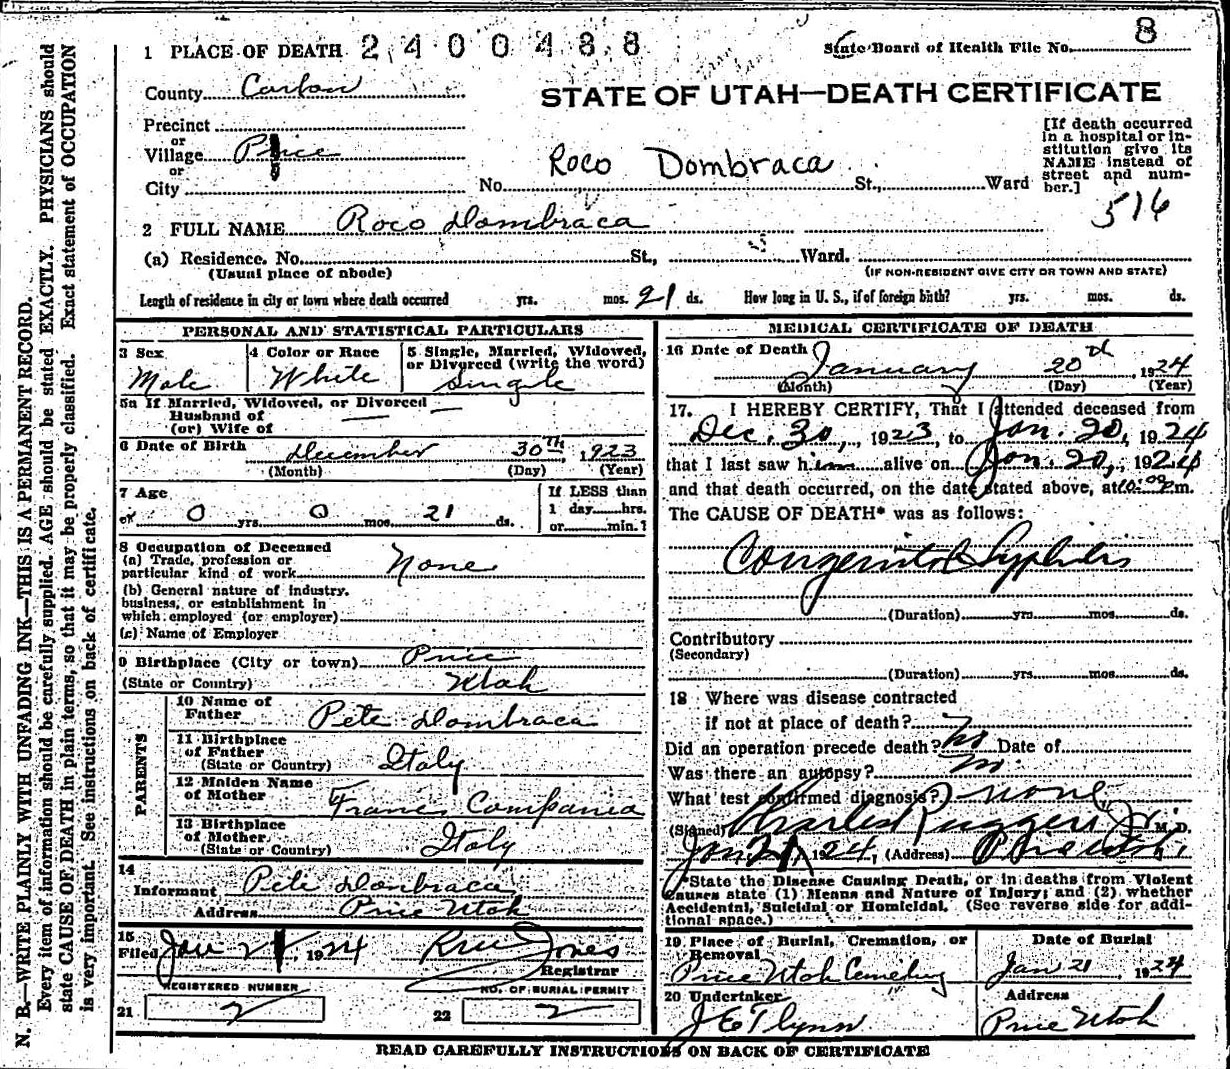 1 PLACE OF DEATH 2400488
State Board of Health File No. 8
County Carbon
STATE OF UTAH—DEATH CERTIFICATE
Precinct
or
Village Price
or
City
Roco Dombraca
No. St., Ward
[If death occurred in a hospital or institution give its NAME instead of street and number.]
516
2 FULL NAME Roco Dombraca
(a) Residence. No. St., Ward.
(Usual place of abode) (IF NON-RESIDENT GIVE CITY OR TOWN AND STATE)
Length of residence in city or town where death occurred yrs. mos. 21 ds. How long in U. S., if of foreign birth? yrs. mos. ds.
PERSONAL AND STATISTICAL PARTICULARS
3 Sex Male
4 Color or Race White
5 Single, Married, Widowed, or Divorced (write the word) Single
5a If Married, Widowed, or Divorced
Husband of
(or) Wife of
6 Date of Birth December 30th, 1923
(Month) (Day) (Year)
7 Age
or 0 yrs. 0 mos. 21 ds.
If LESS than
1 day hrs.
or min.?
8 Occupation of Deceased
(a) Trade, profession or
particular kind of work None
(b) General nature of industry,
business, or establishment in
which employed (or employer)
(c) Name of Employer
9 Birthplace (City or town) Price
(State or Country) Utah
PARENTS
10 Name of Father Pete Dombraca
11 Birthplace of Father
(State or Country) Italy
12 Maiden Name of Mother Frances Compania
13 Birthplace of Mother
(State or Country) Italy
14
Informant Pete Dombraca
Address Price Utah
15
Filed Jan 21, 1924
Jones
Registrar
REGISTERED NUMBER NO. OF BURIAL PERMIT
21 2 22 2
MEDICAL CERTIFICATE OF DEATH
16 Date of Death January 20th, 1924
(Month) (Day) (Year)
17. I HEREBY CERTIFY, That I attended deceased from
Dec. 30, 1923, to Jan. 20, 1924
that I last saw him alive on Jan. 20, 1924
and that death occurred, on the date stated above, at 10:00 P.m.
The CAUSE OF DEATH* was as follows:
Congenital Syphilis
(Duration) yrs. mos. ds.
Contributory
(Secondary)
(Duration) yrs. mos. ds.
18 Where was disease contracted
if not at place of death?
Did an operation precede death? No Date of
Was there an autopsy? no.
What test confirmed diagnosis? none
(Signed) Charles Ruggeri Jr. M. D.
Jan 21, 1924, (Address) Price Utah,
*State the Disease Causing Death, or in deaths from Violent
Causes state (1) Means and Nature of Injury; and (2) whether
Accidental, Suicidal or Homicidal. (See reverse side for addi-
tional space.)
19 Place of Burial, Cremation, or Removal Date of Burial
Price Utah Cemetery Jan 21, 1924
20 Undertaker Address
J E Flynn Price Utah
READ CAREFULLY INSTRUCTIONS ON BACK OF CERTIFICATE
N. B.—WRITE PLAINLY WITH UNFADING INK—THIS IS A PERMANENT RECORD.
Every item of information should be carefully supplied. AGE should be stated EXACTLY. PHYSICIANS should
state CAUSE OF DEATH in plain terms, so that it may be properly classified. Exact statement of OCCUPATION
is very important. See instructions on back of certificate.